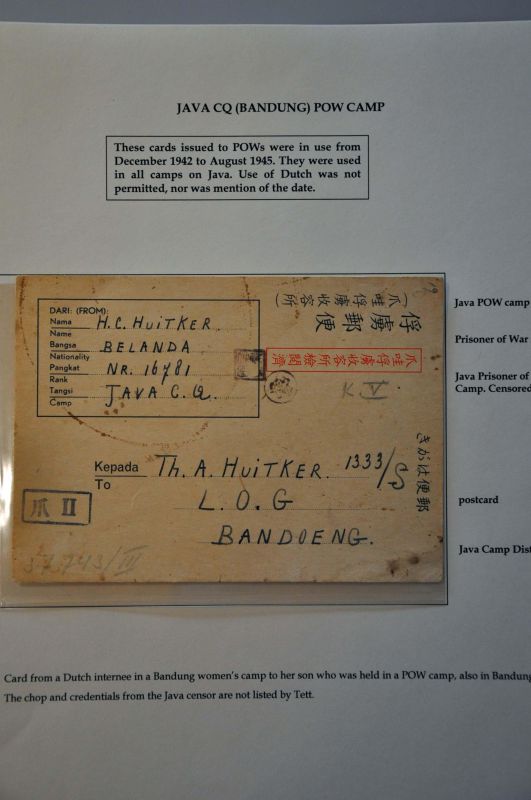 JAVA CQ (BANDUNG) POW CAMP
These cards issued to POWs were in use from
December 1942 to August 1945. They were used
in all camps on Java. Use of Dutch was not
permitted, nor was mention of the date.
(爪哇俘虜收容所)
俘虜郵便
爪哇俘虜收容所檢閱濟
DARI: (FROM):
Nama
Name
H.C. HUITKER
Bangsa
Nationality
BELANDA
Pangkat
Rank
NR. 16781
Tangsi
Camp
JAVA C.Q.
K V.
Kepada
To
Th. A. HUITKER. 1333/S
L.O.G
BANDOENG.
爪 II
3.7.743/III
きがは便郵
Java POW camp
Prisoner of War
Java Prisoner of
Camp. Censored
postcard
Java Camp Dist
Card from a Dutch internee in a Bandung women's camp to her son who was held in a POW camp, also in Bandung
The chop and credentials from the Java censor are not listed by Tett.